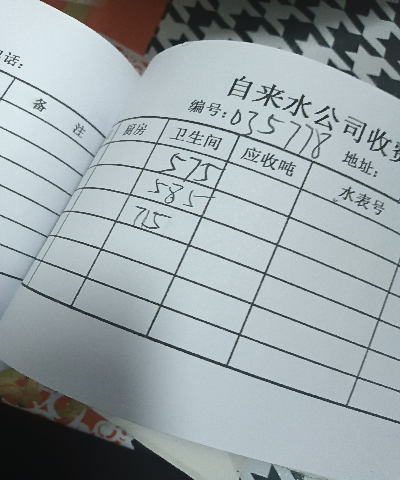 话:
备 注
自来水公司收费
编号:035778 地址:
厨房 卫生间 应收吨 水表号
575
585
715